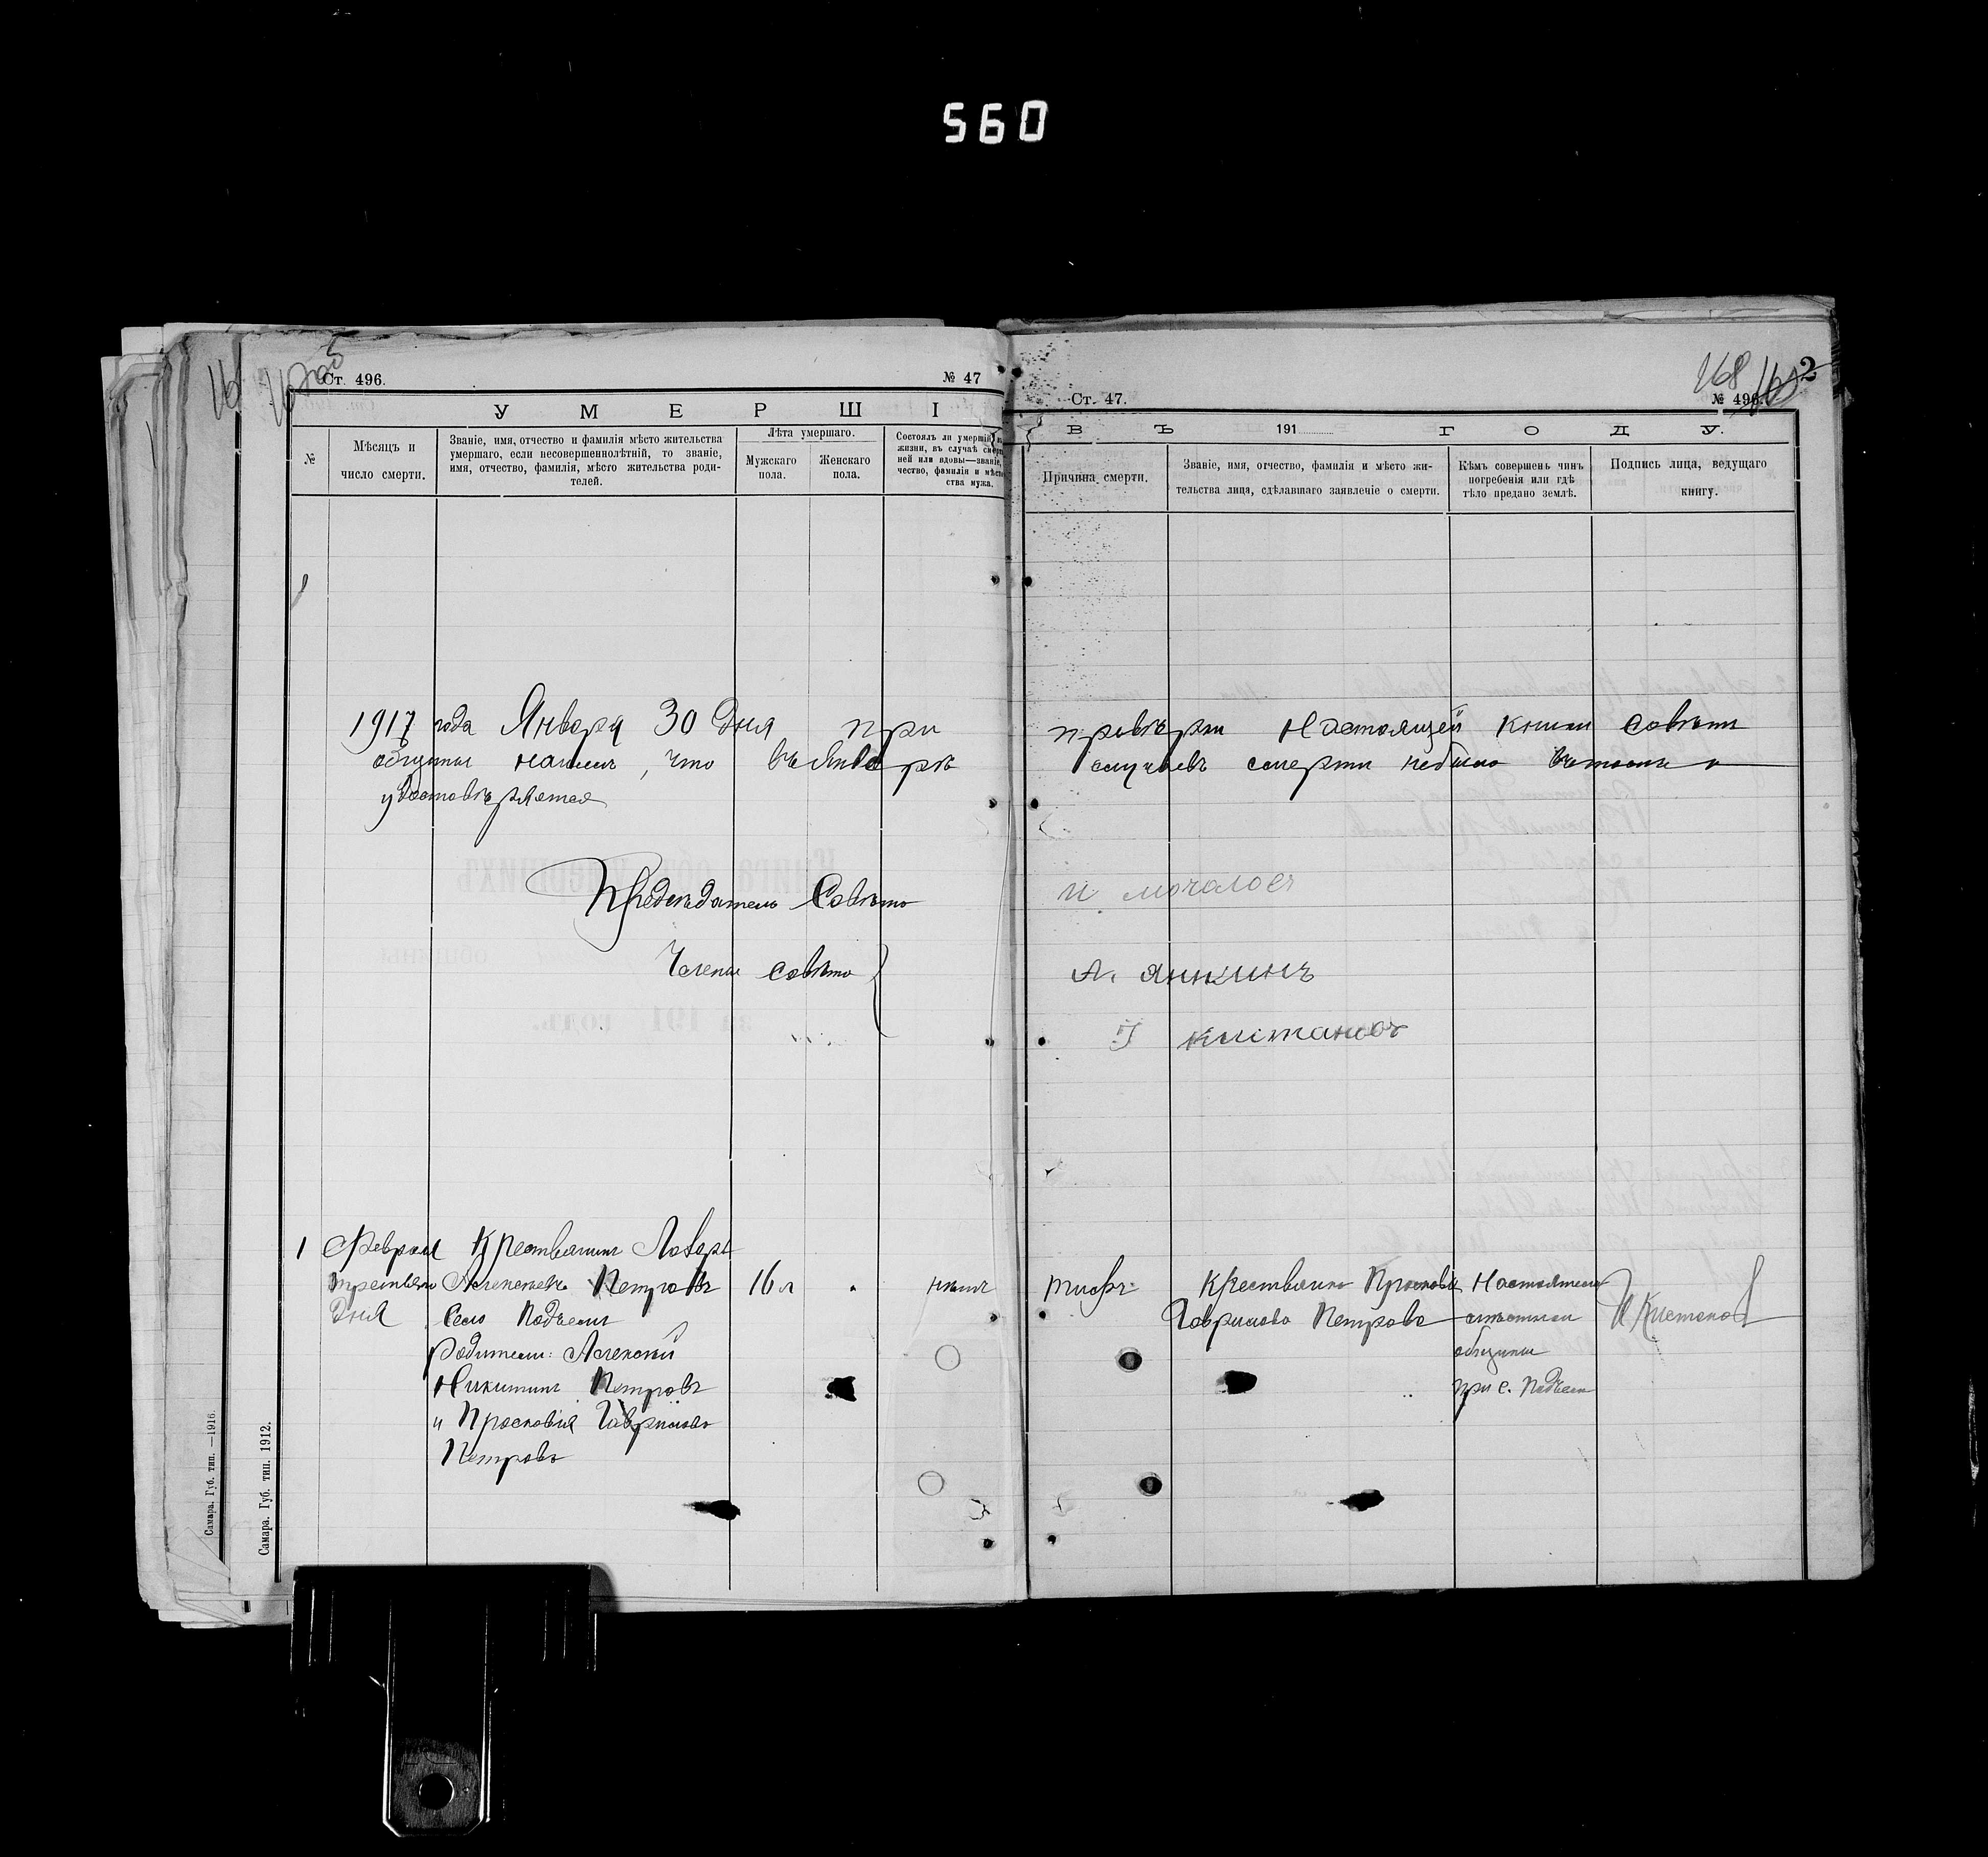 560
Ст. 496.
№ 47
У М Е Р Ш І
№
Мѣсяцъ и число смерти.
Званіе, имя, отчество и фамилія мѣсто жительства умершаго, если несовершеннолѣтній, то званіе, имя, отчество, фамилія, мѣсто жительства родителей.
Лѣта умершаго.
Мужскаго пола.
Женскаго пола.
Состоялъ ли умершій
жизни, въ случаѣ смер
ней или вдовы—званіе,
чество, фамилія и мѣсто
ства мужа.
1917 года Января 30 дня при
общины нашелъ, что въ Январѣ
удостовѣряется
Предсѣдатель Совѣта
Члены совѣта
1 Февраля Крестьянинъ Лазарь
третьяго Алексѣевъ Петровъ 16 л нѣтъ
дня Село Подъемъ
Родители: Алексѣй
Никитинъ Петровъ
и Прасковія Гаврилова
Петрова
Самара. Губ. тип. —1916.
Самара. Губ. тип. 1912.
168
2
Ст. 47.
№ 496.
В Ъ 191 Г О Д У.
Причина смерти.
Званіе, имя, отчество, фамилія и мѣсто жительства лица, сдѣлавшаго заявленіе о смерти.
Кѣмъ совершенъ чинъ погребенія или гдѣ тѣло предано землѣ.
Подпись лица, ведущаго книгу.
провѣрки Настоящей книги Совѣтъ
случаевъ смерти небыло
И мочаловъ
А. янкинъ
кистановъ
тифъ Крестьянка Просковія Настоятель
Гаврилова Петрова И Кистанов
общины
при с. Подъем